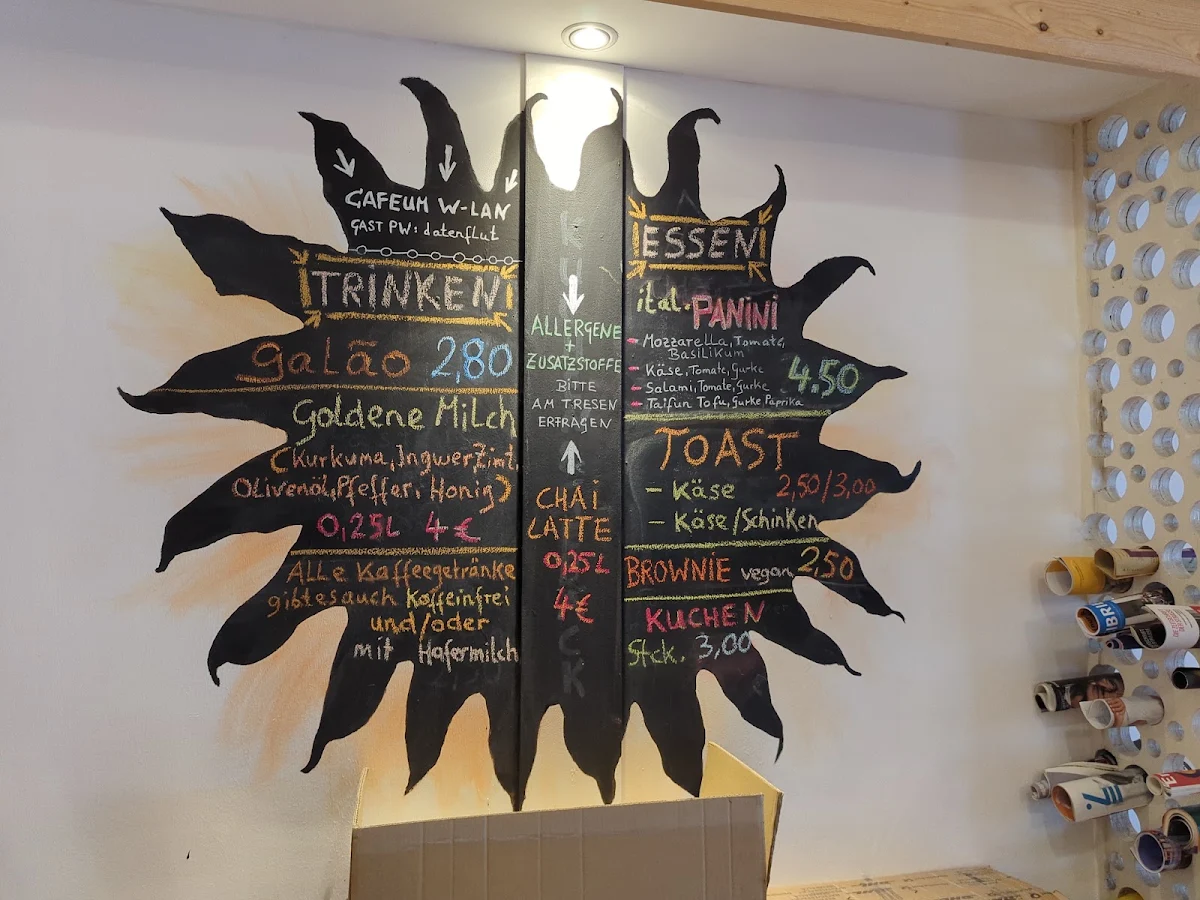 CAFEUM W-LAN
GAST PW: datenflut
TRINKEN
Galão 2,80
Goldene Milch
(Kurkuma, Ingwer, Zimt,
Olivenöl, Pfeffer, Honig)
0,25L 4€
Alle Kaffeegetränke
gibtes auch Koffeinfrei
und/oder
mit Hafermilch
ALLERGENE
+
ZUSATZSTOFFE
BITTE
AM TRESEN
ERFRAGEN
CHAI
LATTE
0,25L
4€
ESSEN
ital. PANINI
- Mozzarella, Tomate,
Basilikum
- Käse, Tomate, Gurke
- Salami, Tomate, Gurke
- Taifun Tofu, Gurke, Paprika
4.50
TOAST
- Käse 2,50/3,00
- Käse/Schinken
BROWNIE vegan 2,50
KUCHEN
Stck. 3,00